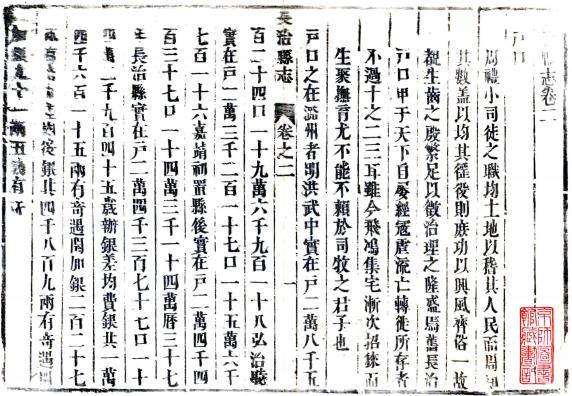 志卷二
戶口
周禮小司徒之職均土地以稽其人民而周知
其數蓋以均其徭役則庶功以興風齊俗一故
觀生齒之殷繁足以徵治理之隆盛焉舊長治
戶口甲于天下自屢經寇虐流亡轉徙所存者
不過十之二三耳雖今飛鴻集宅漸次招徠而
生聚撫育尤不能不賴於司牧之君子也
戶口之在潞州者明洪武中實在戶二萬八千五
長治縣志
卷之二
一
百二十四口一十九萬六千九百一十八弘治
實在戶二萬三千二百一十七口一十五萬六千
七百一十六嘉靖初置縣後實在戶二萬四千四
百三十七口一十四萬三千一十四萬曆三十七
年長治縣實在戶二萬四千三百七十七口一十
四萬二千九百四十五歲辦銀差均費銀共一萬
四千六百一十五兩有奇遇閏加銀二百二十七
後銀共四千八百九兩有奇遇閏
兩五錢有奇
京師圖書館藏書